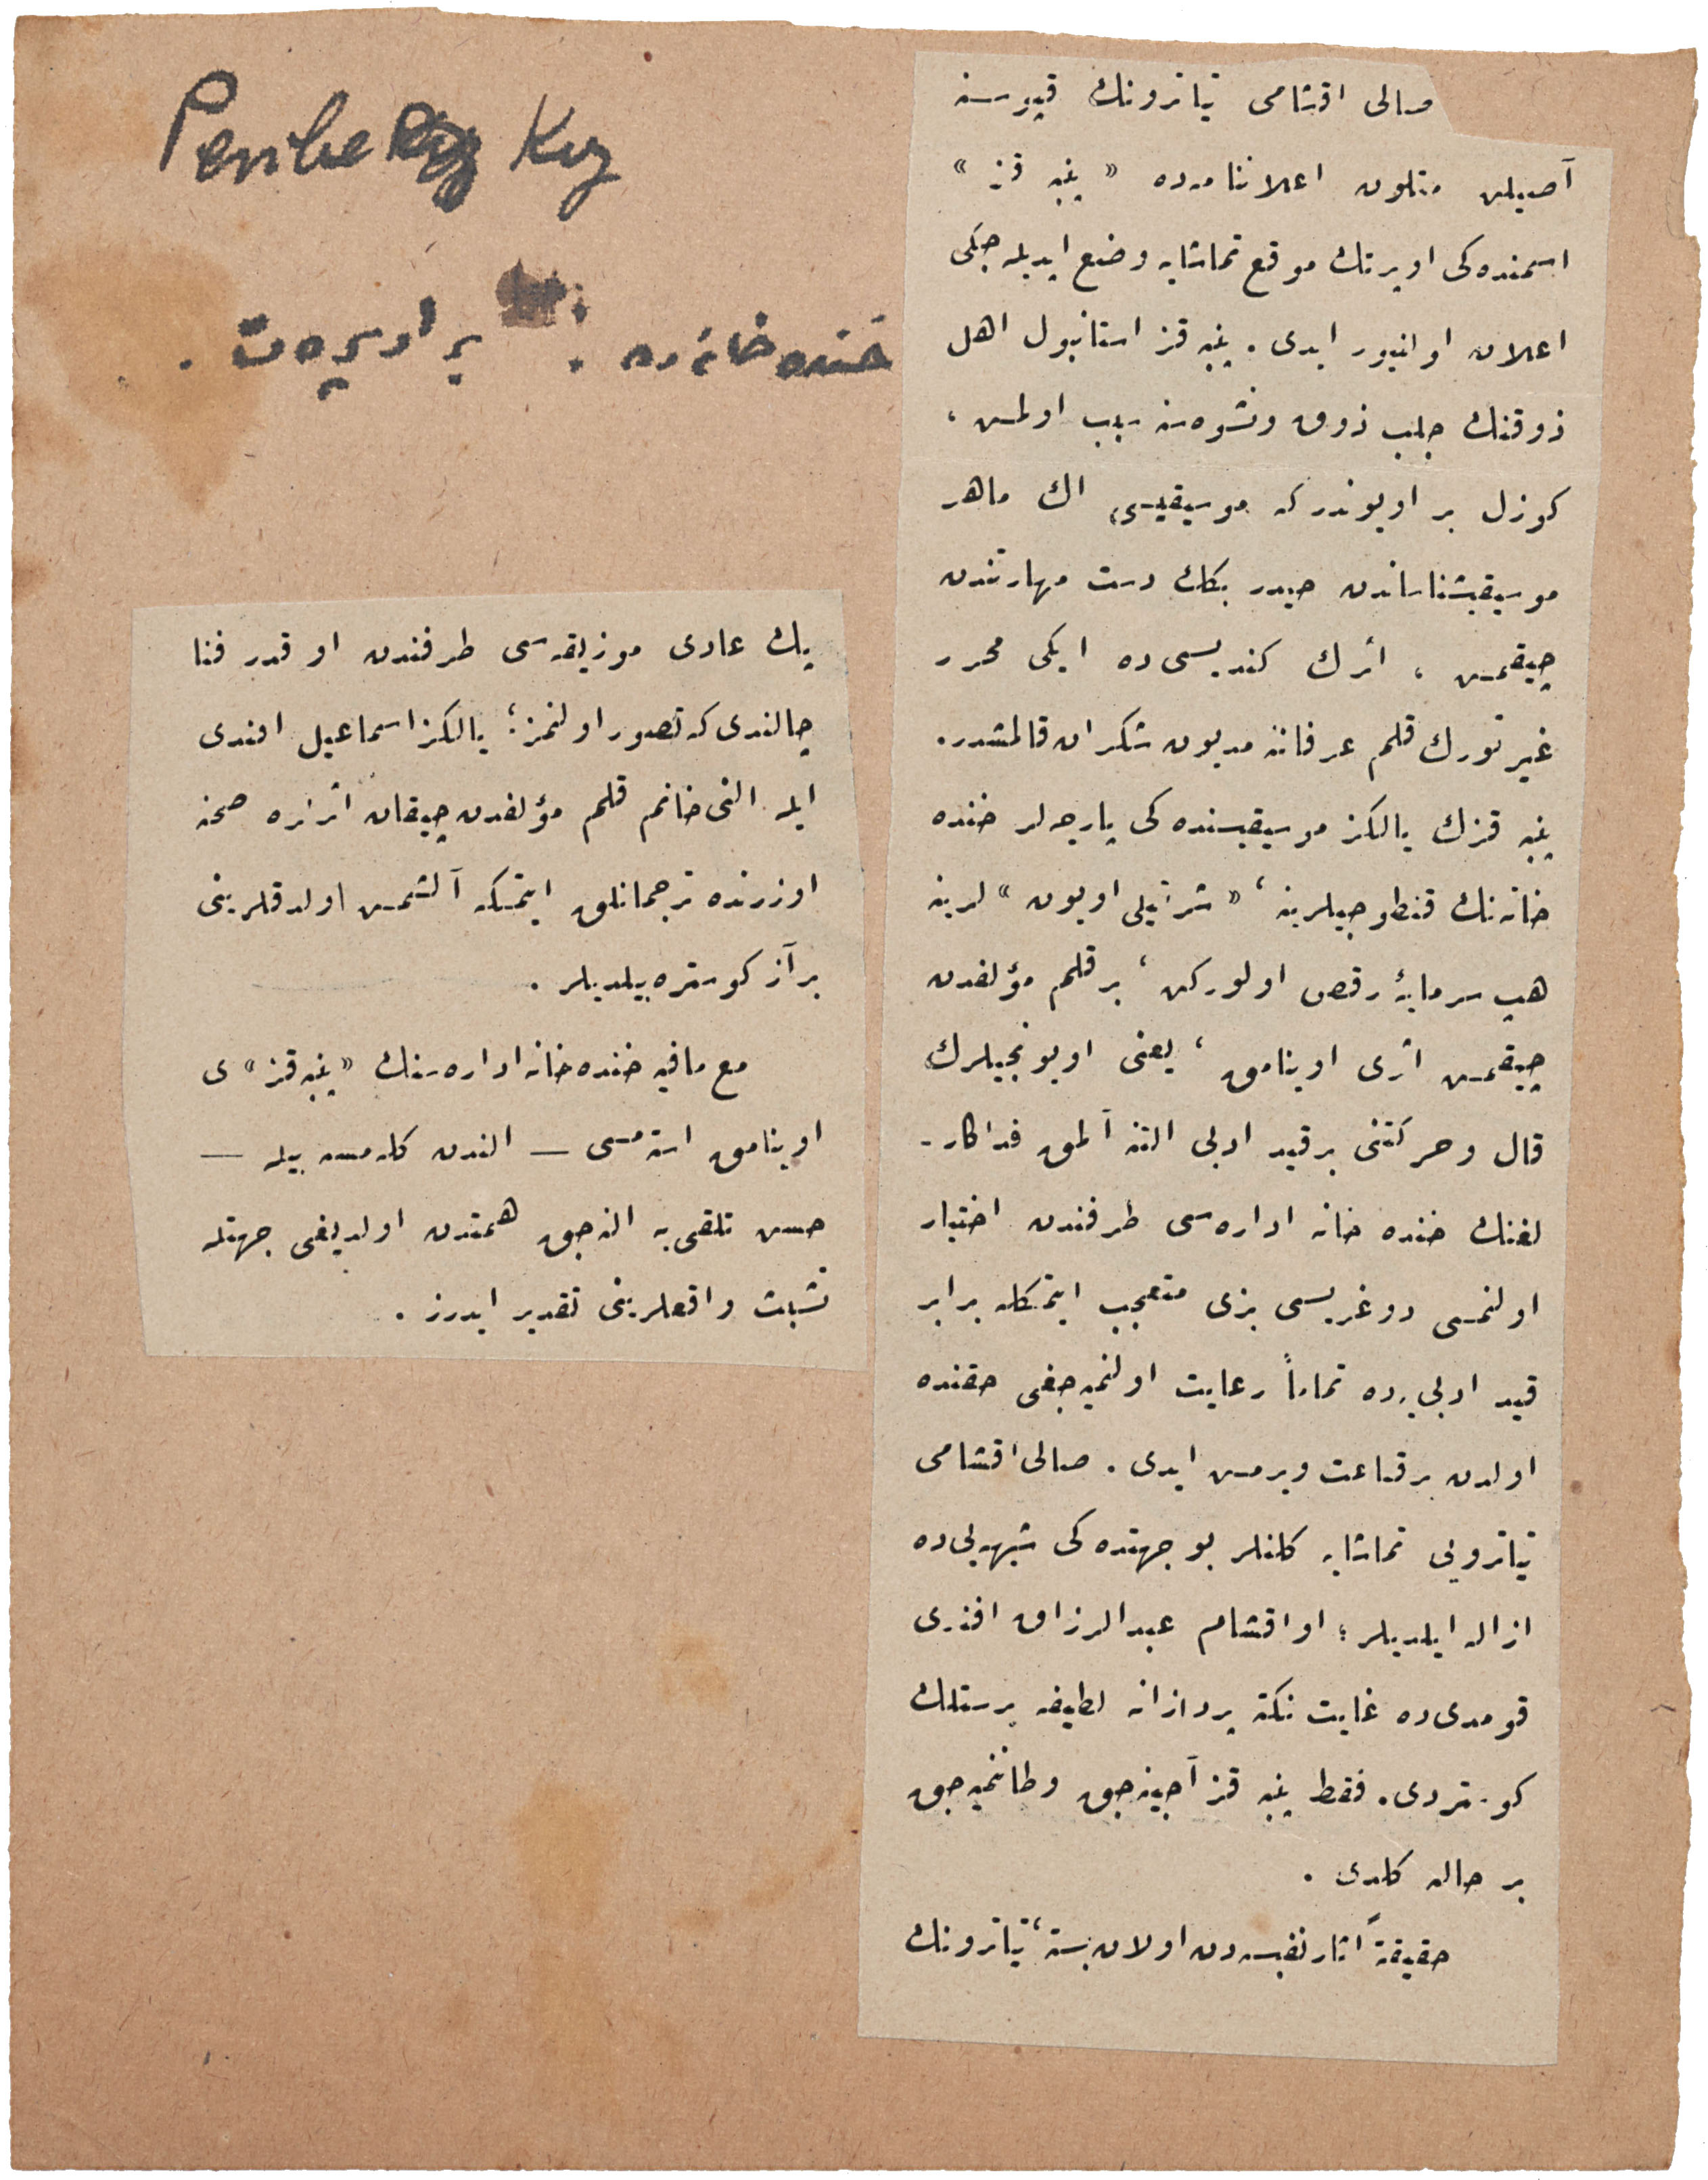 Penbe Kız
خنده‌خانه‌ده : بر اوپه‌ره‌ت .
صالی اقشامی تیاترونك قپوسنه
آصیلمش متلون اعلاننامه‌ده « پنبه قز »
اسمنده‌كی اوپرتك موقع تماشایه وضع ایدیله‌جكی
اعلان اولنیور ایدی . پنبه قز استانبول اهل
ذوقنك جلب ذوق ونشوه‌سنه سبب اولمش ،
كوزل بر اویوندر كه موسیقیسی اك ماهر
موسیقیشناساندن حیدر بكك دست مهارتندن
چیقمش ، اثرك كندیسی ده ایكی محرر
غیر تورك قلم عرفاننه مدیون شكران قالمشدر .
پنبه قزك یالكز موسیقیسنده‌كی پارچه‌لر خنده
خانه‌نك قنطوجیلرینه ، « شرتیلی اویون » لرینه
هپ سرمایهٔ رقص اولوركن ، بر قلم مؤلفدن
چیقمش اثری اوینامق ، یعنی اویونجیلرك
قال وحركتنی بر قید ادبی التنه آلمق فداكار-
لغنك خنده خانه اداره‌سی طرفندن اختیار
اولنمسی دوغریسی بزی متعجب ایتمكله برابر
قید ادبی‌یه ده تماماً رعایت اولنمیه‌جغی حقنده
اولدن بر قناعت ویرمش ایدی . صالی اقشامی
تیاترویی تماشایه كلنلر بو جهتده‌كی شبهه‌یی ده
ازاله ایلدیلر ؛ او اقشام عبدالرزاق افندی
قومدی‌ده غایت نكته پردازانه لطیفه پرستلك
كوستردی . فقط پنبه قز آجینه‌جق وطاننمیه‌جق
بر حاله كلدی .
حقیقةً آثار نفیسه‌دن اولان بسته ، تیاترونك
پك عادی موزیقه‌سی طرفندن او قدر فنا
چالندی كه تصور اولنمز ؛ یالكز اسماعیل افندی
ایله النی خانم قلم مؤلفدن چیقان اثرلره صحنه
اوزرنده ترجمانلق ایتمكه آلشمش اولدقلرینی
بر آز كوستره‌بیلدیلر .
مع مافیه خنده‌خانه اداره‌سنك « پنبه قز » ی
اوینامق استه‌مسی — الندن كله‌مسه بیله —
حسن تلقی‌یه النه‌جق همتدن اولدیغی جهتله
تشبث واقعلرینی تقدیر ایدرز .